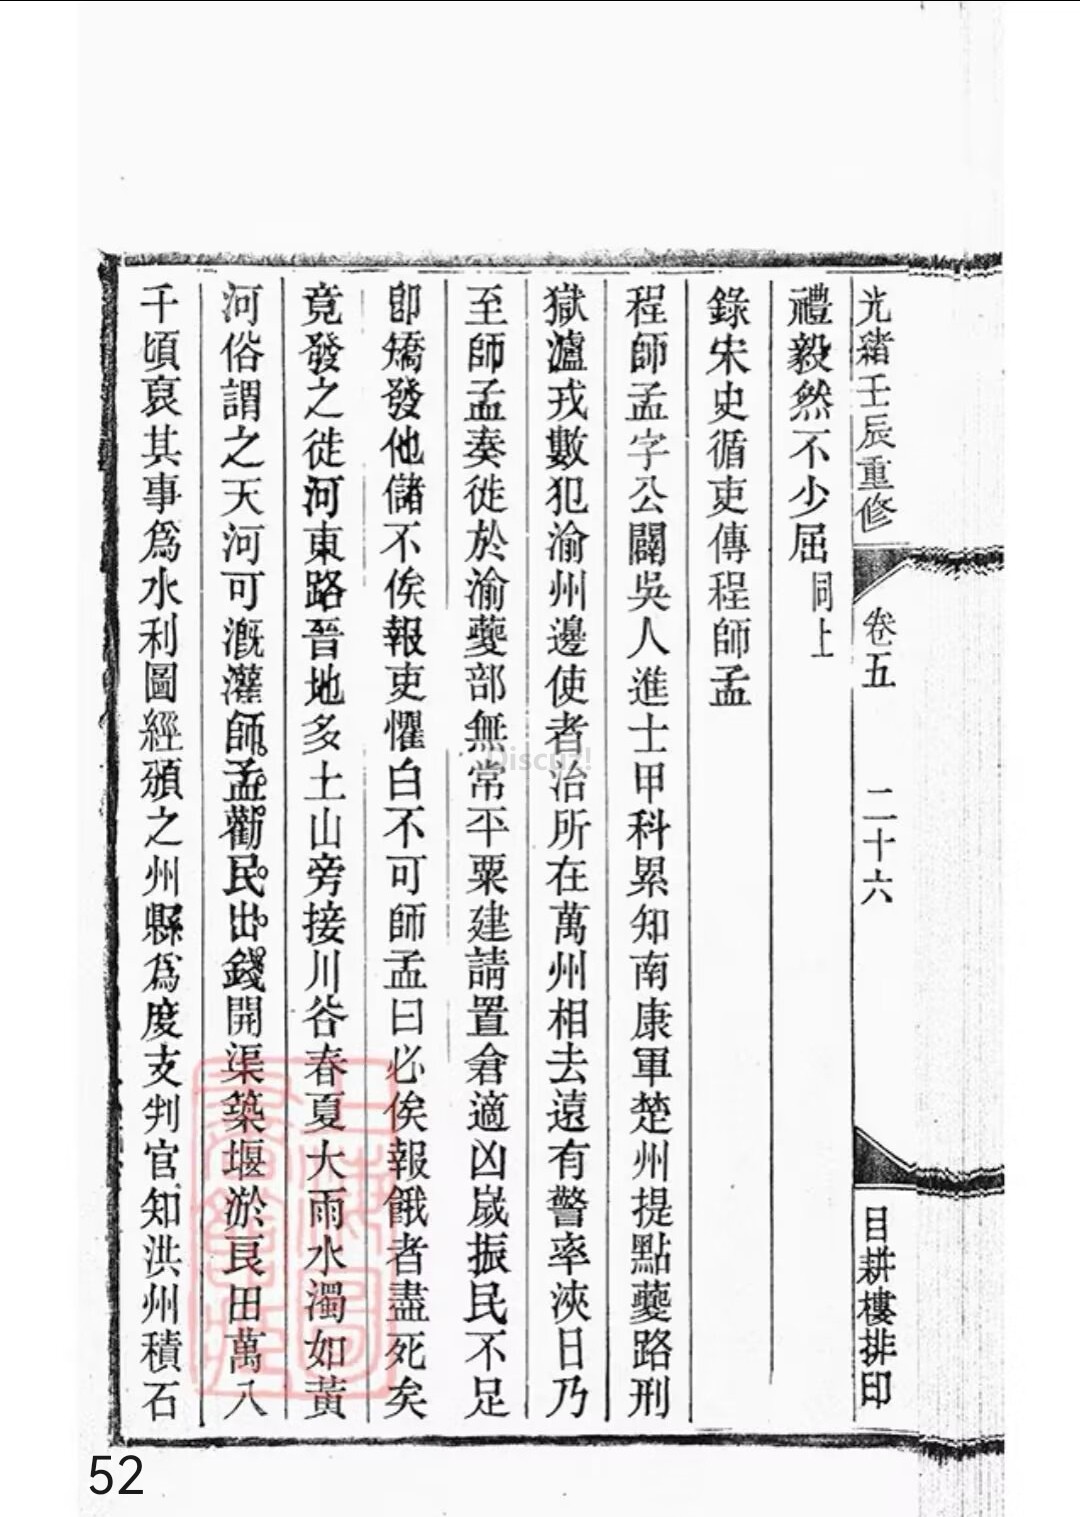 光緒壬辰重修
卷五
二十六
目耕樓排印
禮毅然不少屈同上
錄宋史循吏傳程師孟
程師孟字公闢吳人進士甲科累知南康軍楚州提點夔路刑
獄瀘戎數犯渝州邊使者治所在萬州相去遠有警率浹日乃
至師孟奏徙於渝夔部無常平粟建請置倉適凶歲振民不足
卽矯發他儲不俟報吏懼白不可師孟曰必俟報餓者盡死矣
竟發之徙河東路晉地多土山旁接川谷春夏大雨水濁如黃
河俗謂之天河可漑灌師孟勸民出錢開渠築堰淤良田萬八
千頃裒其事爲水利圖經頒之州縣爲度支判官知洪州積石
上海圖
書館藏
Discuz!
52